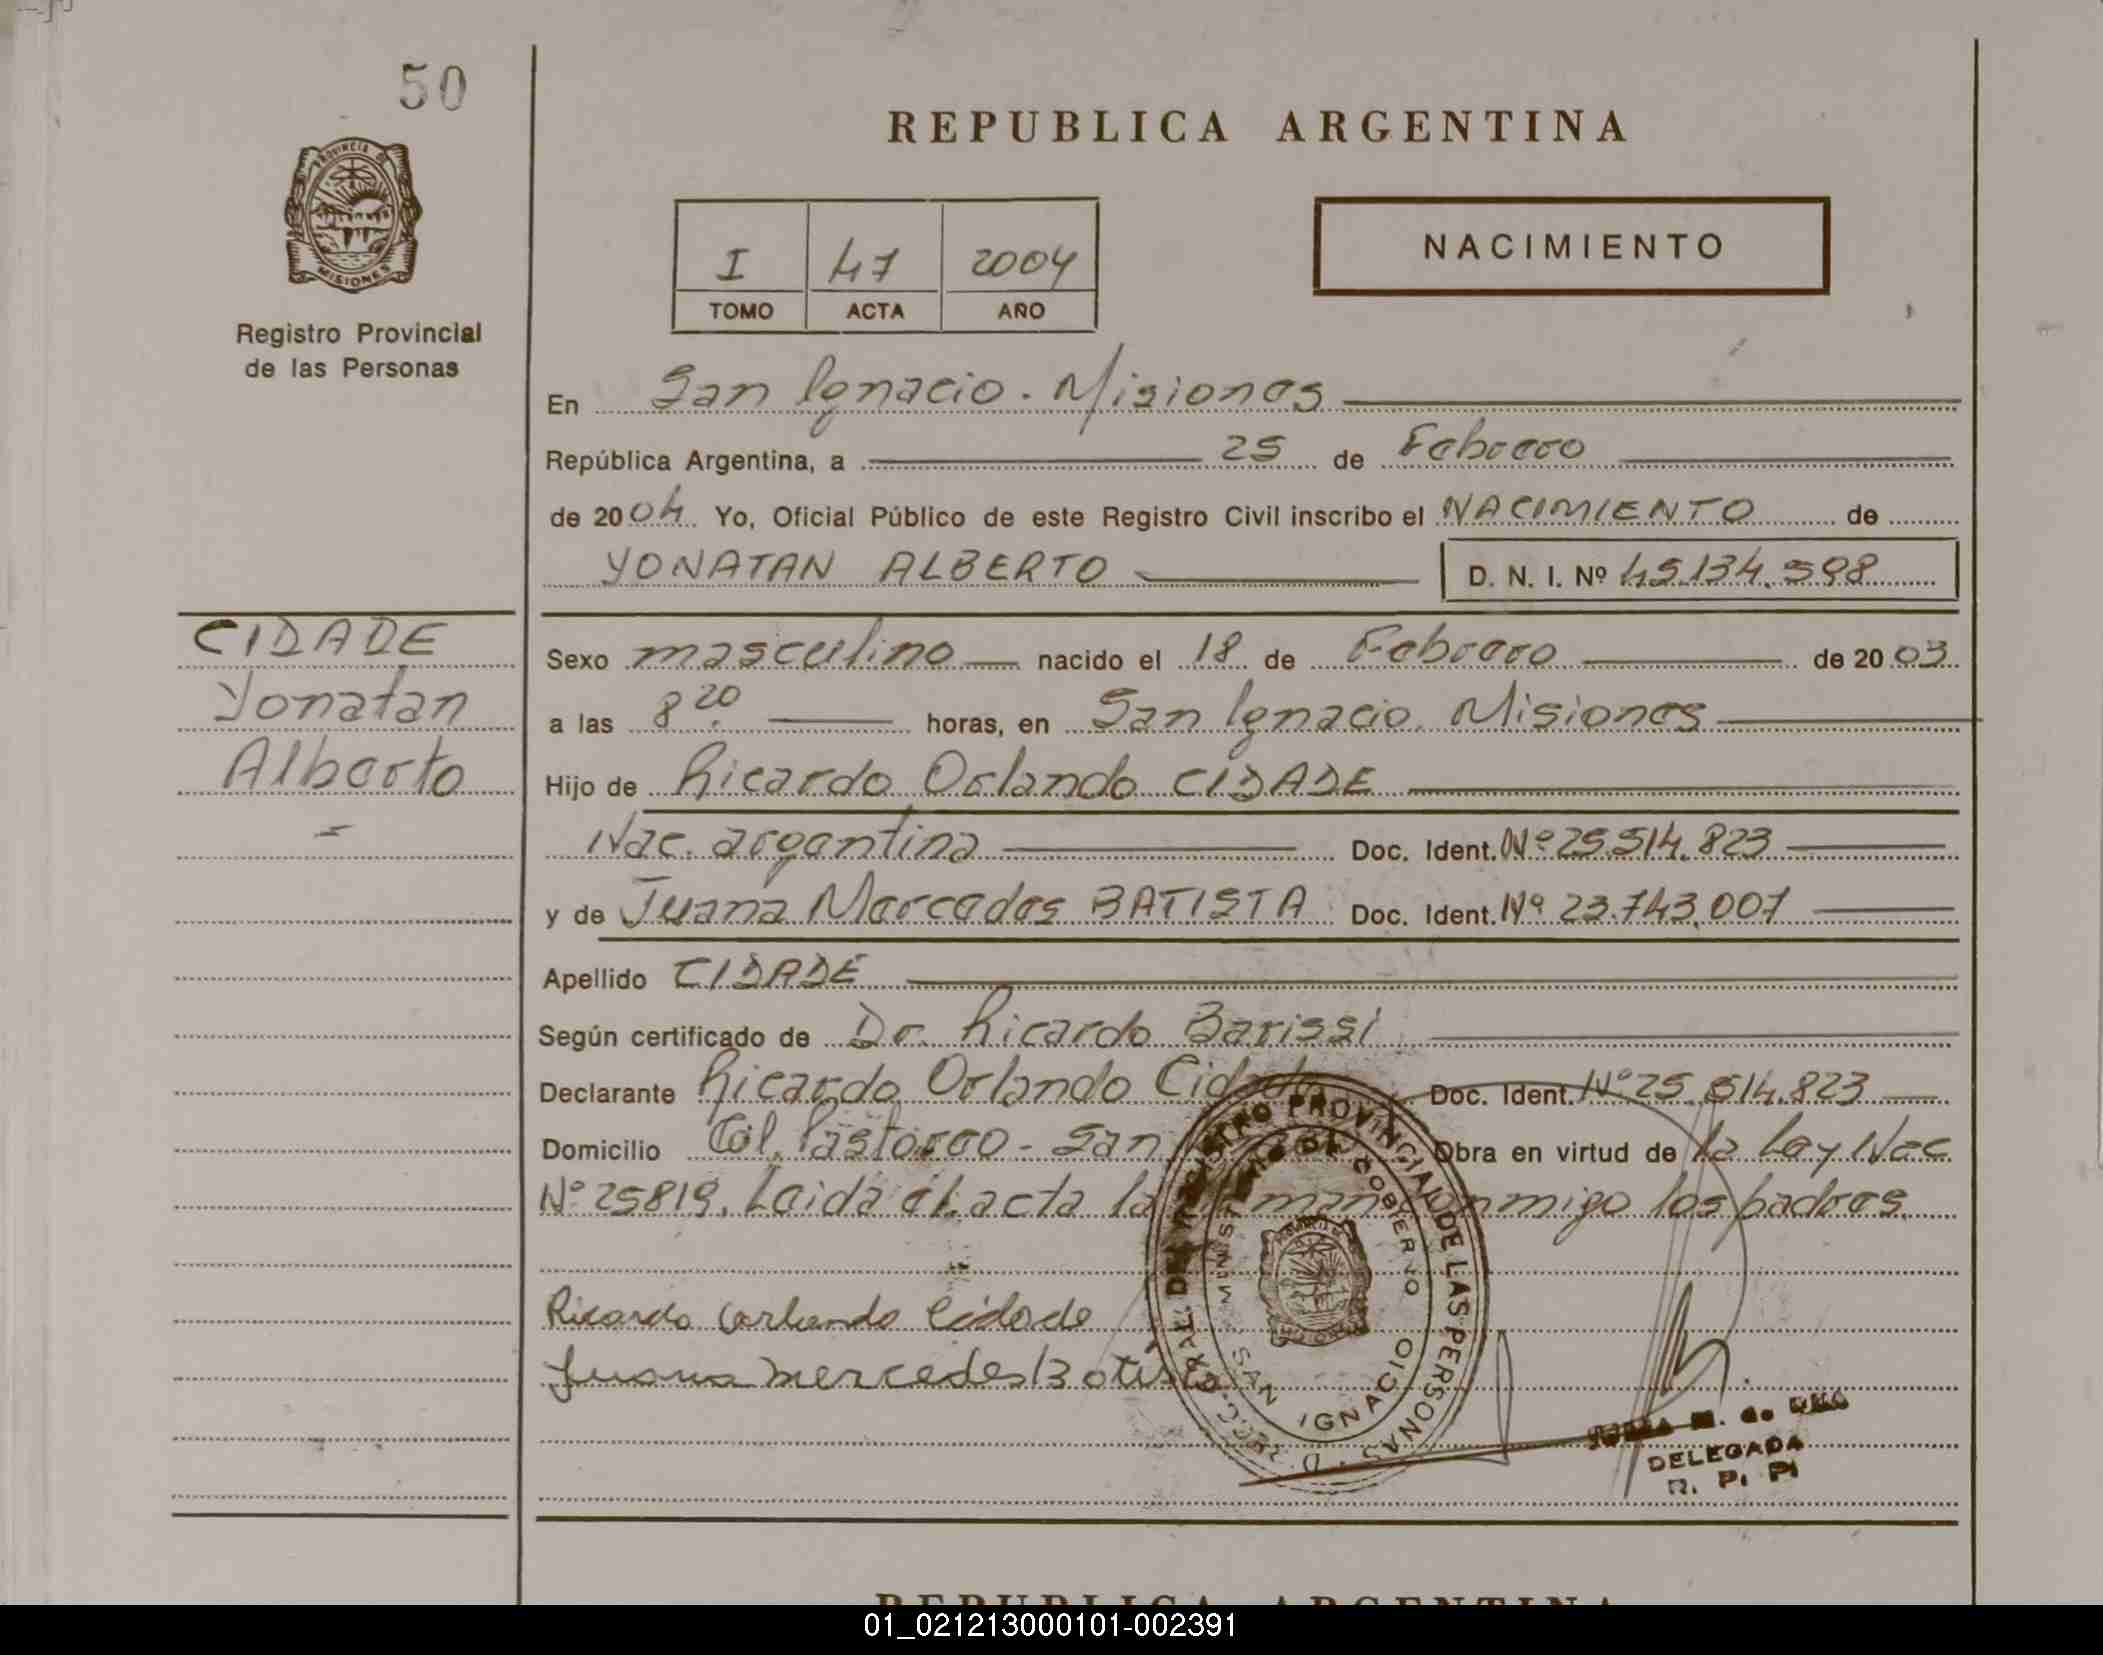 50
PROVINCIA DE
MISIONES
Registro Provincial
de las Personas
REPUBLICA ARGENTINA
I 47 2004
TOMO ACTA AÑO
NACIMIENTO
En San Ignacio. Misiones
República Argentina, a 25 de Febrero
de 2004 Yo, Oficial Público de este Registro Civil inscribo el NACIMIENTO de
YONATAN ALBERTO D. N. I. Nº 45.134.598
CIDADE
Yonatan
Alberto
Sexo masculino nacido el 18 de Febrero de 2003
a las 8 20 horas, en San Ignacio. Misiones
Hijo de Ricardo Orlando CIDADE
Nac. argentina Doc. Ident. Nº 25.514.823
y de Juana Mercedes BATISTA Doc. Ident. Nº 23.743.007
Apellido CIDADE
Según certificado de Dr. Ricardo Barissi
Declarante Ricardo Orlando Cidade Doc. Ident. Nº 25.514.823
Domicilio Col. Pastoreo - San Obra en virtud de la Ley Nac
Nº 25819. Leida el acta la firman conmigo los padres.
Ricardo Orlando Cidade
Juana Mercedes Batista
REGISTRO PROVINCIAL DE LAS PERSONAS
MINISTERIO DE GOBIERNO
SAN IGNACIO
DELEGADA
R. P. P.
REPUBLICA ARGENTINA
01_021213000101-002391